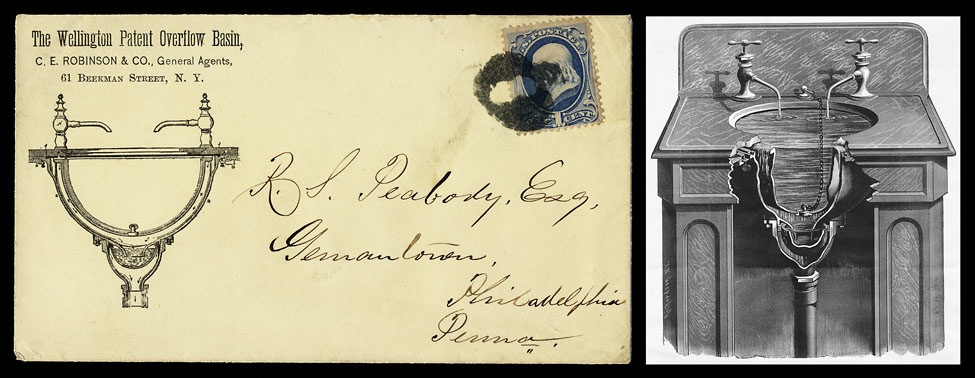 The Wellington Patent Overflow Basin,
C. E. ROBINSON & CO., General Agents,
61 BEEKMAN STREET, N. Y.
U.S. POSTAGE
R. S. Peabody, Esq,
Gemantown,
Philadelphia
Penna.